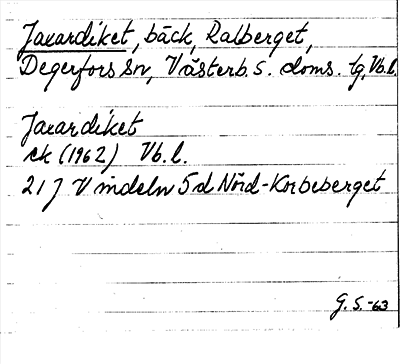 Jaxardiket, bäck, Ralberget,
Degerfors sn, Västerb. s. doms. tg, Vb. l.
Jaxardiket
ek (1962) Vb. l.
21 J Vindeln 5d Nörd-Korbeberget
G. S. -63